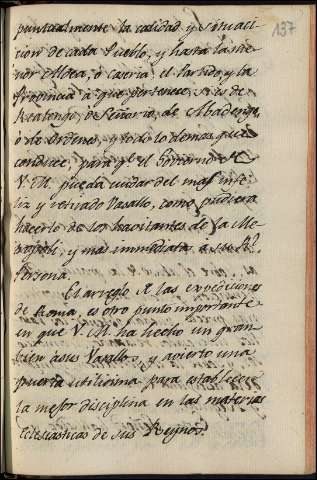 137
puntualmente la calidad y situac
cion de cada Pueblo, y hasta la me
nor Aldea, ò Caseria: el Partido, y la
Provincia à que pertenece: si es de
Realengo, ò Señorio de Abadengo,
ò de Ordenes, y todo lo demas, que
conduce, para qe el Govierno de
V. M. pueda cuidar del mas infe
liz y retirado Vasallo, como pudiera
hacerlo de los havitantes de la Me
tropoli, y mas immediata à su Rl
Persona.
El arreglo de las
de Roma, es otro punto importante
en que V. M. ha hecho un gran
bien à sus Vasallos, y avierto una
puerta utilisima para establecer
la mejor disciplina en las materias
Eclesiasticas de sus Reynos.